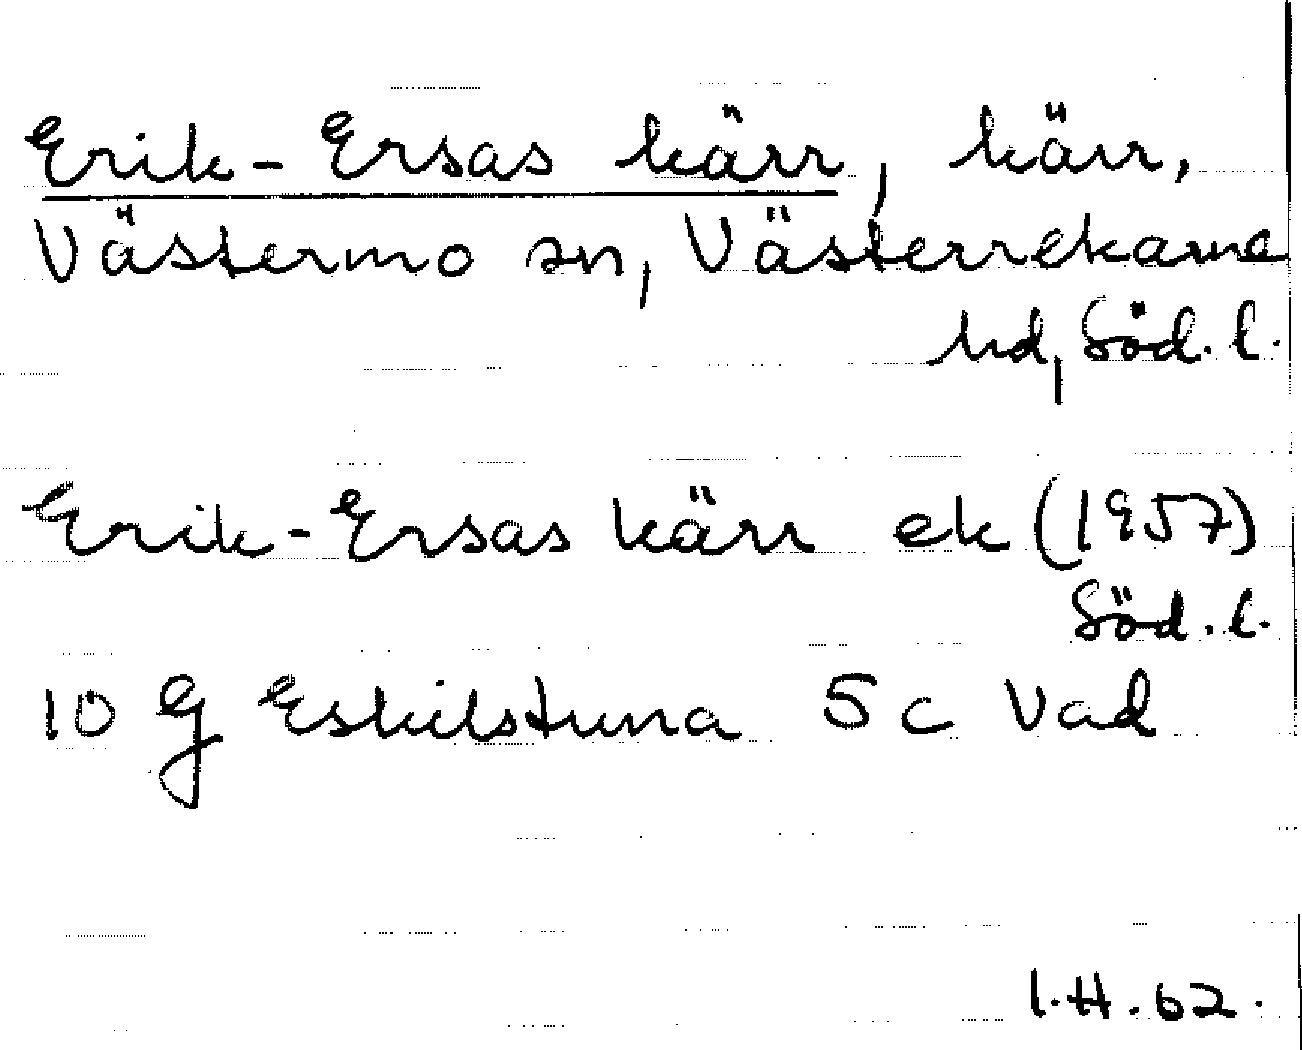 Erik-Ersas kärr, kärr,
Västermo sn, Västerrekarne
hd, Söd. l.
Erik-Ersas kärr ek (1957)
Söd. l.
10 G Eskilstuna 5 c Vad
I.H. 62.